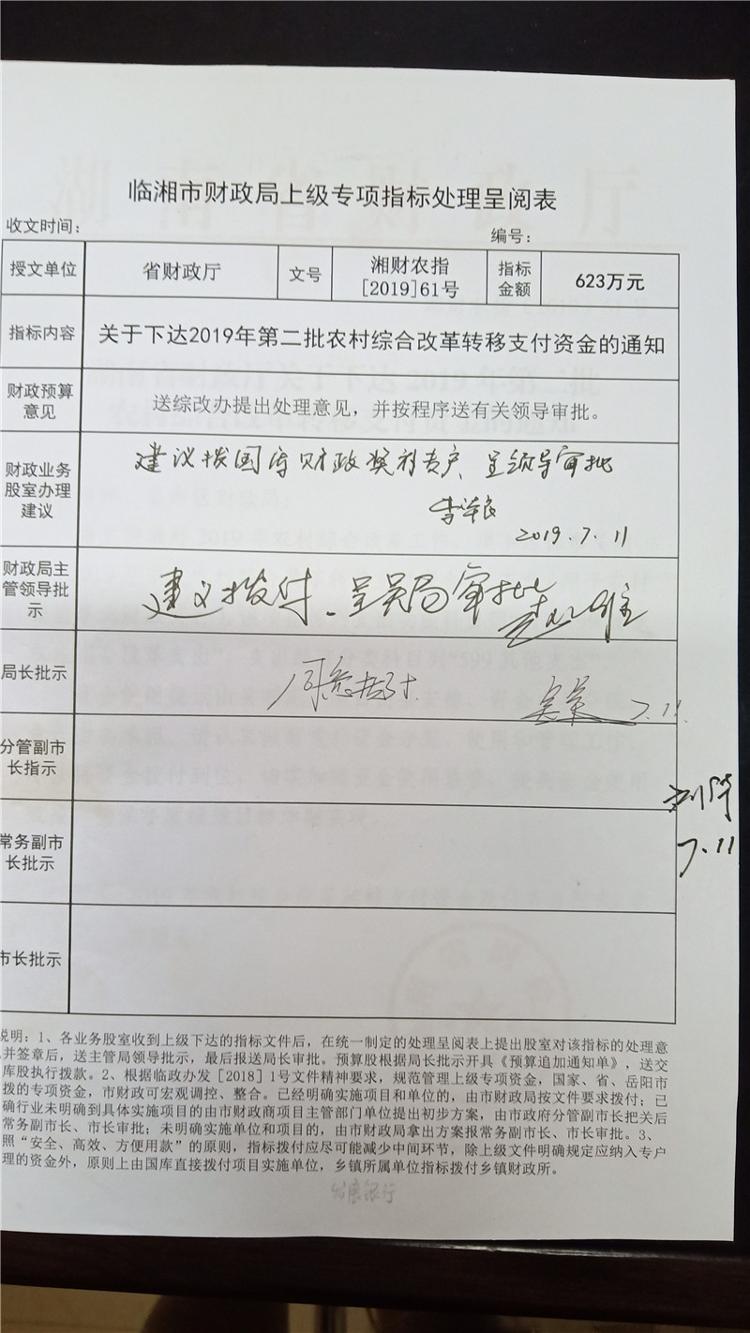 临湘市财政局上级专项指标处理呈阅表
收文时间：
编号：
授文单位
省财政厅
文号
湘财农指
[2019]61号
指标
金额
623万元
指标内容
关于下达2019年第二批农村综合改革转移支付资金的通知
财政预算
意见
送综改办提出处理意见，并按程序送有关领导审批。
财政业务
股室办理
建议
建议拨国库财政奖补专户 呈领导审批
2019.7.11
财政局主
管领导批
示
建议拨付、呈吴局审批
局长批示
同意拨付
7.11
分管副市
长指示
7.11
常务副市
长批示
市长批示
说明：1、各业务股室收到上级下达的指标文件后，在统一制定的处理呈阅表上提出股室对该指标的处理意
并签章后，送主管局领导批示，最后报送局长审批。预算股根据局长批示开具《预算追加通知单》，送交
库股执行拨款。2、根据临政办发［2018］1号文件精神要求，规范管理上级专项资金，国家、省、岳阳市
拨的专项资金，市财政可宏观调控、整合。已经明确实施项目和单位的，由市财政局按文件要求拨付；已
确行业未明确到具体实施项目的由市财政商项目主管部门单位提出初步方案，由市政府分管副市长把关后
常务副市长、市长审批；未明确实施单位和项目的，由市财政局拿出方案报常务副市长、市长审批。3、
照“安全、高效、方便用款”的原则，指标拨付应尽可能减少中间环节，除上级文件明确规定应纳入专户
理的资金外，原则上由国库直接拨付项目实施单位，乡镇所属单位指标拨付乡镇财政所。